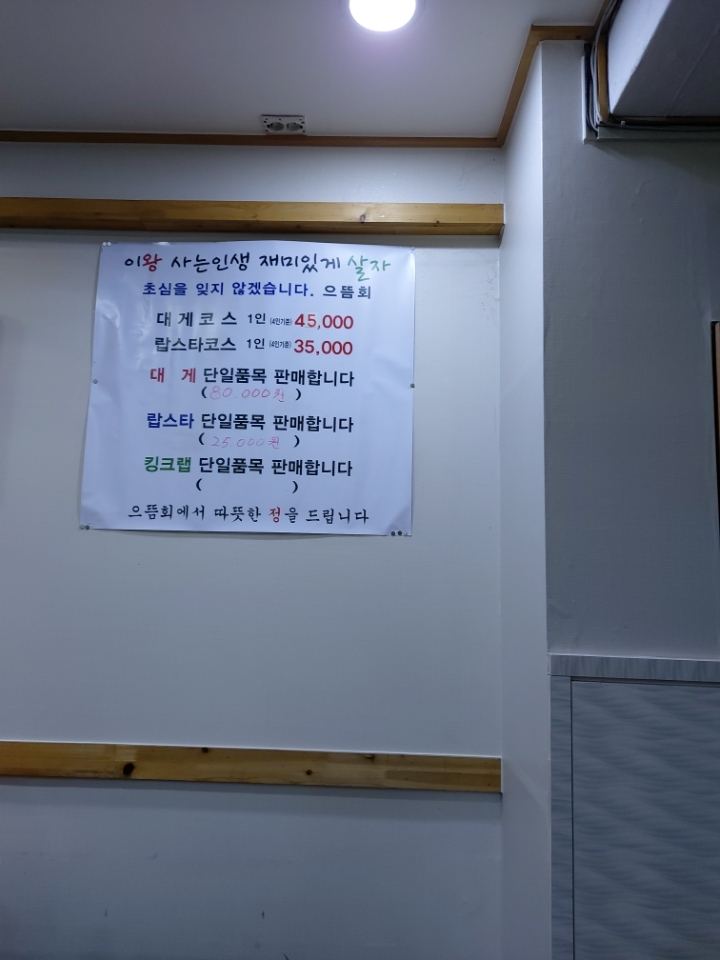 이왕 사는인생 재미있게 살자
초심을 잊지 않겠습니다. 으뜸회
대게코스 1인 (4인기준) 45,000
랍스타코스 1인 (4인기준) 35,000
대 게 단일품목 판매합니다
( 80.000원 )
랍스타 단일품목 판매합니다
( 25.000원 )
킹크랩 단일품목 판매합니다
( )
으뜸회에서 따뜻한 정을 드립니다